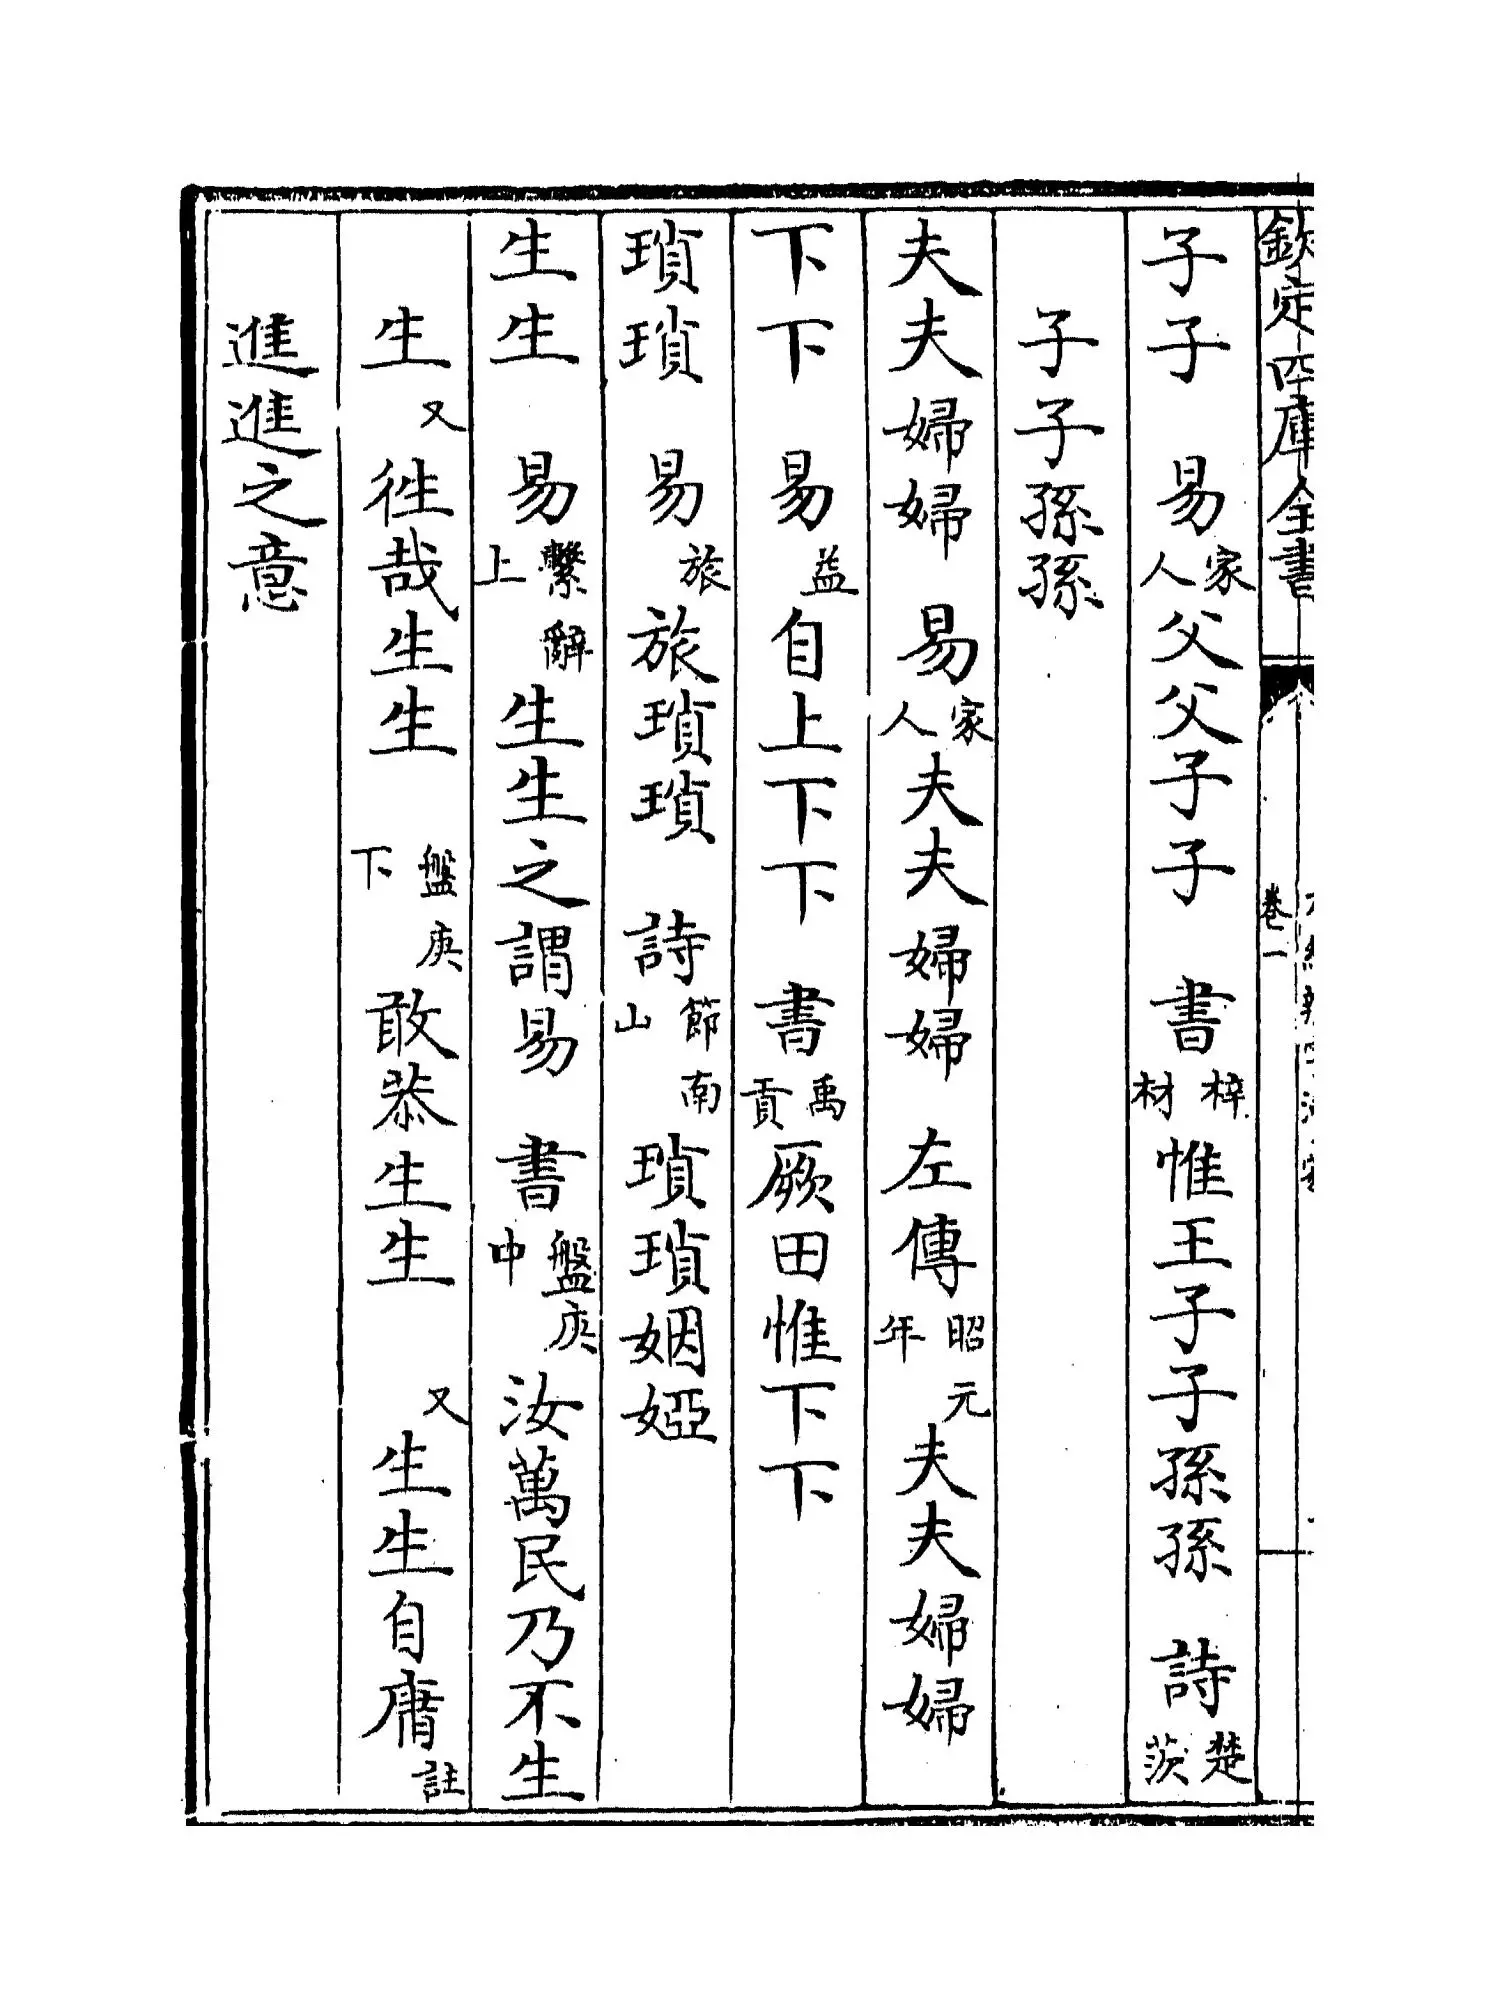 欽定四庫全書
卷一
子子　易家人父父子子　書梓材惟王子子孫孫　詩楚茨
子子孫孫
夫夫婦婦　易家人夫夫婦婦　左傳昭元年夫夫婦婦
下下　易益自上下下　書禹貢厥田惟下下
瑣瑣　易旅旅瑣瑣　詩節南山瑣瑣姻婭
生生　易繫辭上生生之謂易　書盤庚中汝萬民乃不生
生　又徃哉生生　盤庚下敢恭生生　又生生自庸註
進進之意